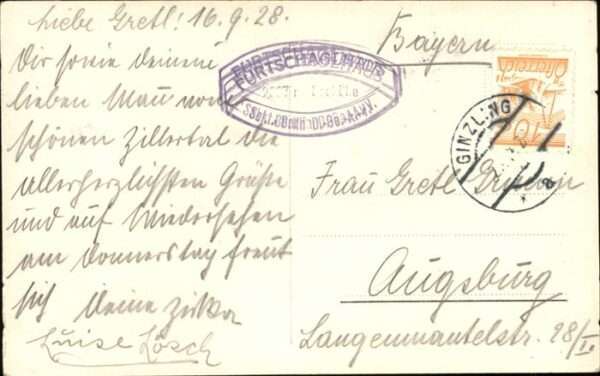 Liebe Gretl! 16.9.28.
Dir sowie deinem
lieben Mann vom
schönen Zillertal die
allerherzlichsten Grüße
und auf Wiedersehen
am Donnerstag freut
sich deine
Luise Lösch
FURTSCHAGLHAUS
Bayern
Österreich
10
GINZLING
Frau Gretl
Augsburg
Langenmantelstr. 28/I.